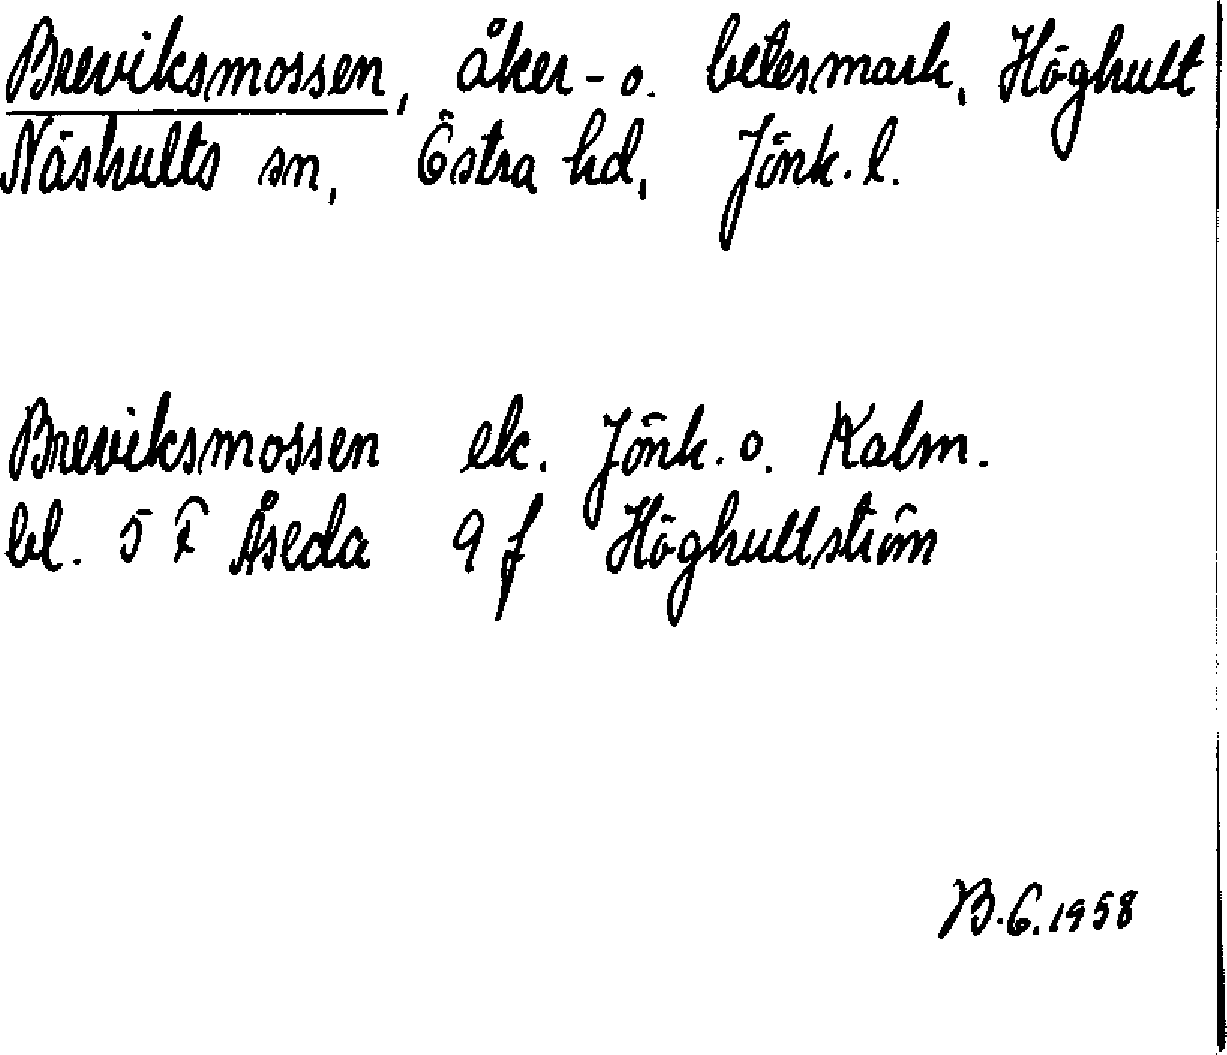 Breviksmossen, åker- o. betesmark, Höghult
Näshults sn, Östra hd, Jönk. l.
Breviksmossen ek. Jönk. o. Kalm.
bl. 5 F Åseda 9 f Höghultström
B.G. 1958